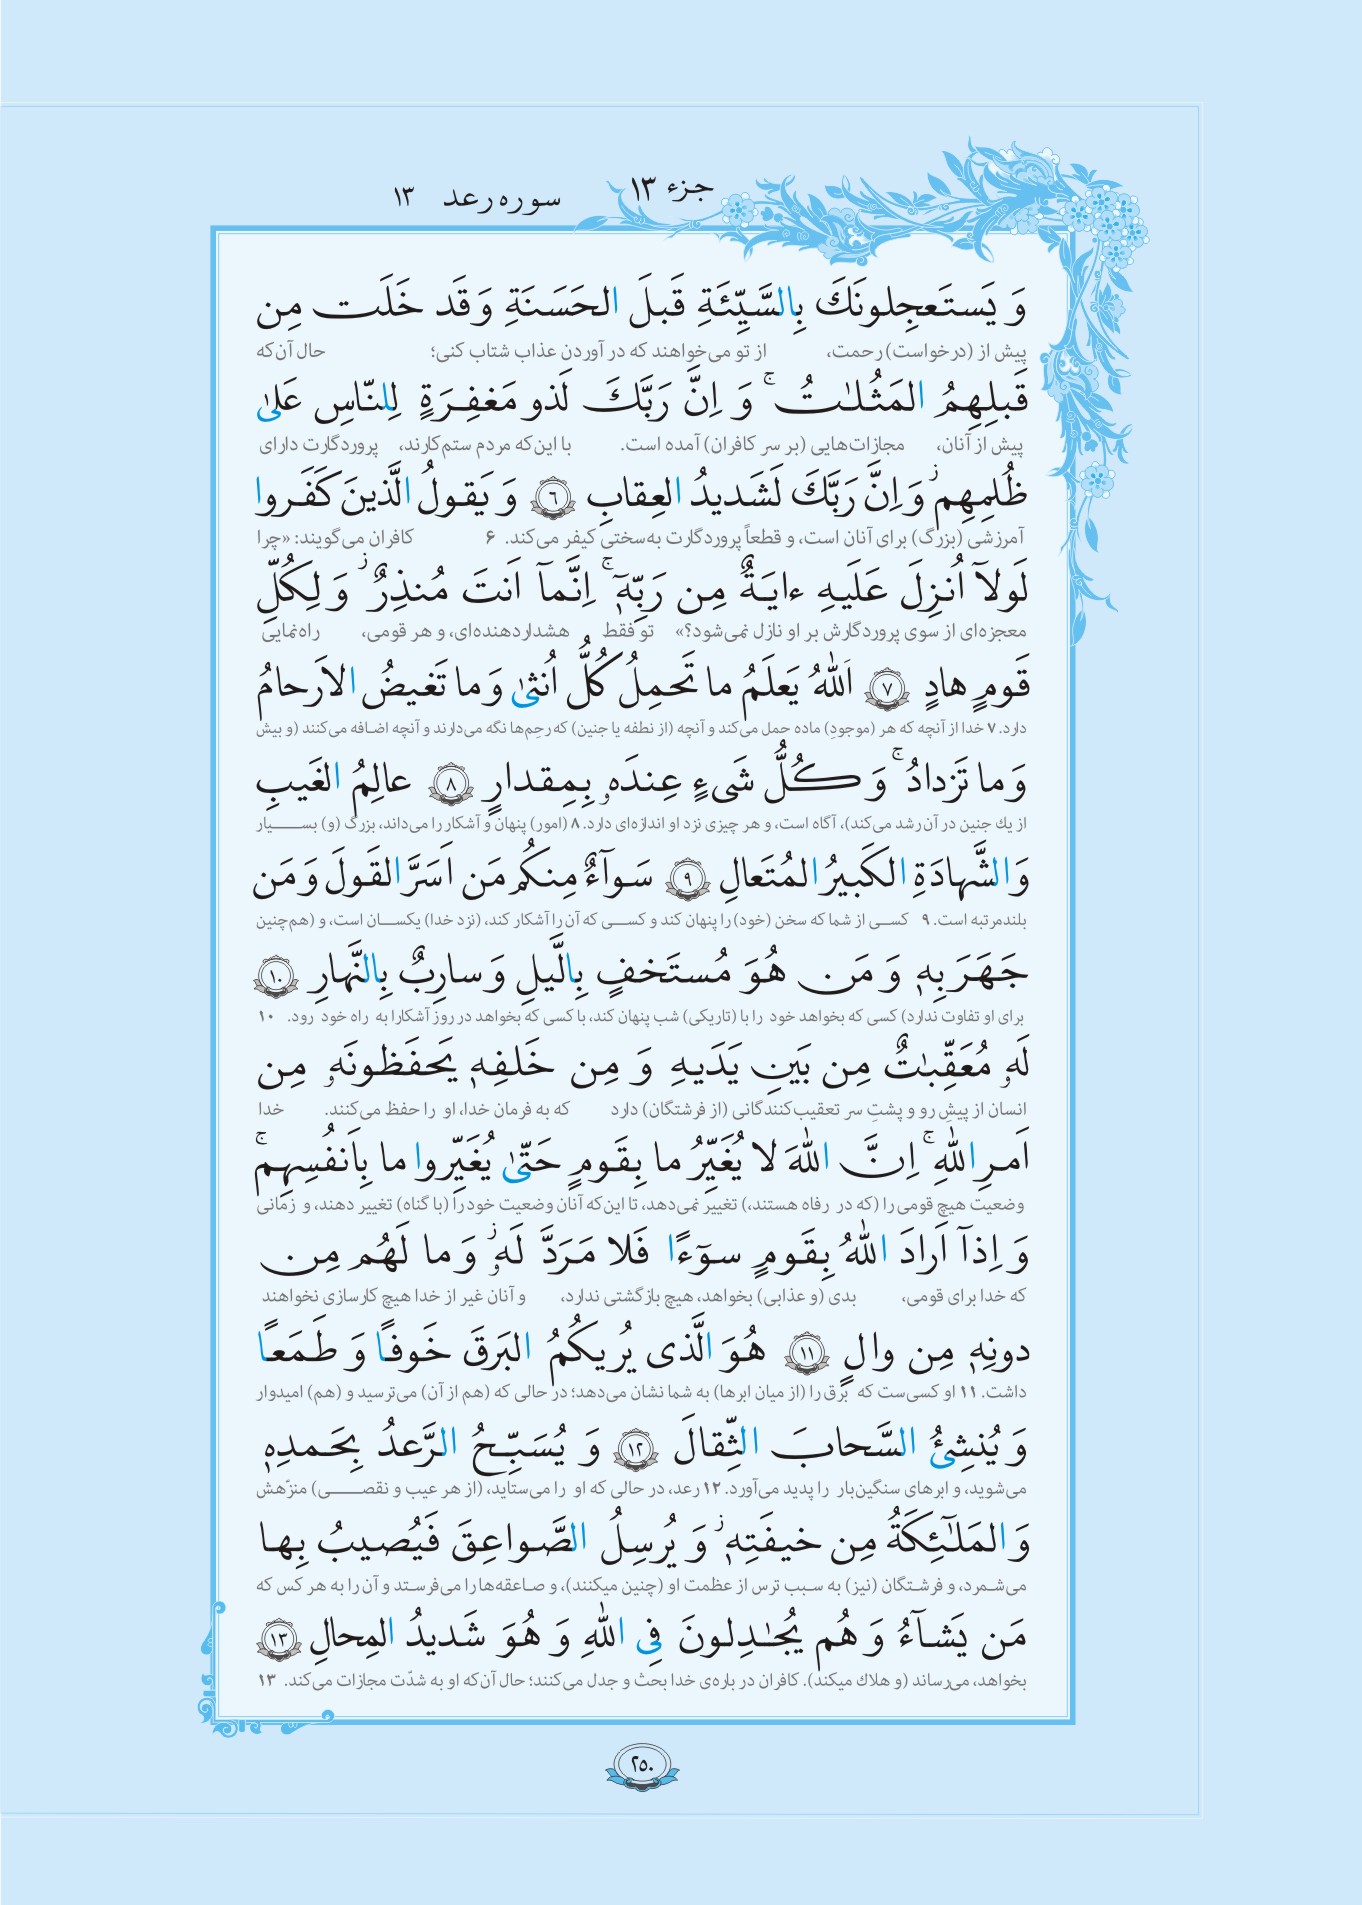 جزء ۱۳
سوره رعد ۱۳
وَ يَستَعجِلونَكَ بِالسَّيِّئَةِ قَبلَ الحَسَنَةِ وَ قَد خَلَت مِن
پیش از (درخواست) رحمت، از تو می‌خواهند که در آوردن عذاب شتاب کنی؛ حال آن‌که
قَبلِهِمُ المَثُلـٰتُ ۚ وَ اِنَّ رَبَّكَ لَذو مَغفِرَةٍ لِلنّاسِ عَلىٰ
پیش از آنان، مجازات‌هایی (بر سر کافران) آمده است. با این‌که مردم ستم‌کارند، پروردگارت دارای
ظُلمِهِم ۖ وَ اِنَّ رَبَّكَ لَشَديدُ العِقابِ ﴿٦﴾ وَ يَقولُ الَّذينَ كَفَروا
آمرزشی (بزرگ) برای آنان است، و قطعاً پروردگارت به‌سختی کیفر می‌کند. ۶ کافران می‌گویند: «چرا
لَولاۤ اُنزِلَ عَلَيهِ ءايَةٌ مِن رَبِّهٖۤ ۚ اِنَّماۤ اَنتَ مُنذِرٌ ۖ وَ لِكُلِّ
معجزه‌ای از سوی پروردگارش بر او نازل نمی‌شود؟» تو فقط هشداردهنده‌ای، و هر قومی، راه‌نمایی
قَومٍ هادٍ ﴿٧﴾ اَللهُ يَعلَمُ ما تَحمِلُ كُلُّ اُنثىٰ وَ ما تَغيضُ الاَرحامُ
دارد. ۷ خدا از آنچه که هر (موجود) ماده حمل می‌کند و آنچه (از نطفه یا جنین) که رحِم‌ها نگه می‌دارند و آنچه اضافه می‌کنند (و بیش
وَ ما تَزدادُ ۚ وَ كُلُّ شَىءٍ عِندَهٗ بِمِقدارٍ ﴿٨﴾ عالِمُ الغَيبِ
از یك جنین در آن رشد می‌کند)، آگاه است، و هر چیزی نزد او اندازه‌ای دارد. ۸ (امور) پنهان و آشکار را می‌داند، بزرگ (و) بسـیار
وَ الشَّهادَةِ الكَبيرُ المُتَعالِ ﴿٩﴾ سَوآءٌ مِنكُم مَن اَسَرَّ القَولَ وَ مَن
بلندمرتبه است. ۹ کسـی از شما که سخن (خود) را پنهان کند و کسـی که آن را آشکار کند، (نزد خدا) یکسـان است، و (هم‌چنین
جَهَرَ بِهٖ وَ مَن هُوَ مُستَخفٍ بِالَّيلِ وَ سارِبٌ بِالنَّهارِ ﴿١٠﴾
برای او تفاوت ندارد) کسی که بخواهد خود را با (تاریکی) شب پنهان کند، با کسی که بخواهد در روز آشکارا به راه خود رود. ۱۰
لَهٗ مُعَقِّبـٰتٌ مِن بَينِ يَدَيهِ وَ مِن خَلفِهٖ يَحفَظونَهٗ مِن
انسان از پیشِ رو و پشتِ سر تعقیب‌کنندگانی (از فرشتگان) دارد که به فرمان خدا، او را حفظ می‌کنند. خدا
اَمرِ اللهِ ۚ اِنَّ اللهَ لا يُغَيِّرُ ما بِقَومٍ حَتّىٰ يُغَيِّروا ما بِاَنفُسِهِم ۚ
وضعیت هیچ قومی را (که در رفاه هستند،) تغییر نمی‌دهد، تا این‌که آنان وضعیت خود را (با گناه) تغییر دهند، و زمانی
وَ اِذاۤ اَرادَ اللهُ بِقَومٍ سوۤءًا فَلا مَرَدَّ لَهٗ ۖ وَ ما لَهُم مِن
که خدا برای قومی، بدی (و عذابی) بخواهد، هیچ بازگشتی ندارد، و آنان غیر از خدا هیچ کارسازی نخواهند
دونِهٖ مِن والٍ ﴿١١﴾ هُوَ الَّذى يُريكُمُ البَرقَ خَوفًا وَ طَمَعًا
داشت. ۱۱ او کسی‌ست که برق را (از میان ابرها) به شما نشان می‌دهد؛ در حالی که (هم از آن) می‌ترسید و (هم) امیدوار
وَ يُنشِئُ السَّحابَ الثِّقالَ ﴿١٢﴾ وَ يُسَبِّحُ الرَّعدُ بِحَمدِهٖ
می‌شوید، و ابرهای سنگین‌بار را پدید می‌آورد. ۱۲ رعد، در حالی که او را می‌ستاید، (از هر عیب و نقصـی) منزّهش
وَ المَلـٰۤئِكَةُ مِن خيفَتِهٖ ۖ وَ يُرسِلُ الصَّواعِقَ فَيُصيبُ بِها
می‌شمرد، و فرشتگان (نیز) به سبب ترس از عظمت او (چنین میکنند)، و صاعقه‌ها را می‌فرستد و آن را به هر کس که
مَن يَشآءُ وَ هُم يُجـٰدِلونَ فِى اللهِ وَ هُوَ شَديدُ المِحالِ ﴿١٣﴾
بخواهد، می‌رساند (و هلاك میکند). کافران در باره‌ی خدا بحث و جدل می‌کنند؛ حال آن‌که او به شدّت مجازات می‌کند. ۱۳
۲۵۰